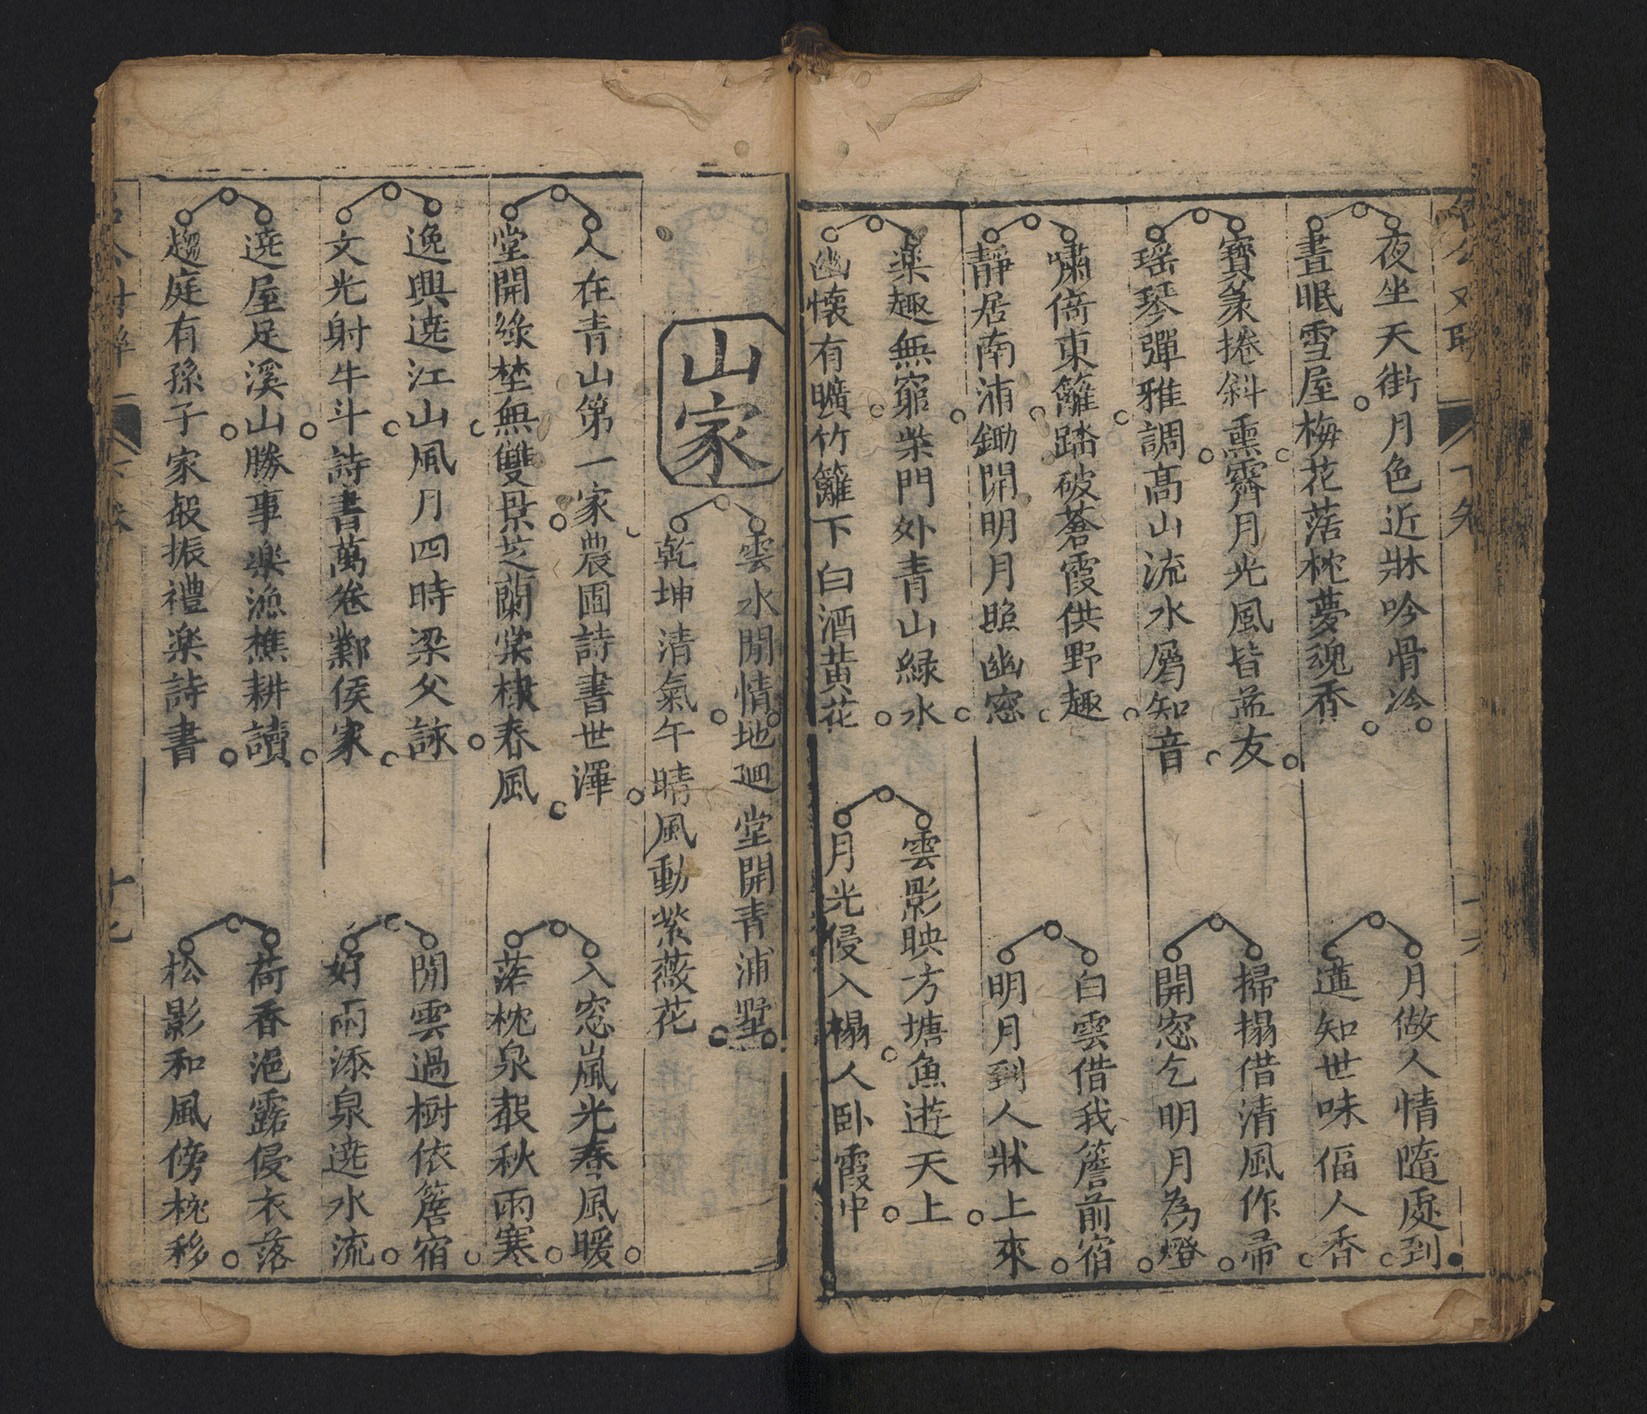 夜坐天街月色近牀吟骨冷
晝眠雪屋梅花落枕夢魂香
月做人情隨處到
蓮知世味偪人香
寶篆捲斜熏霽月光風皆益友
瑤琴彈雅調高山流水屬知音
掃榻借清風作帚
開窓乞明月為燈
嘯倚東籬踏破蒼霞供野趣
靜居南浦鋤開明月照幽窓
白雲借我簷前宿
明月到人牀上來
楽趣無窮柴門外青山緑水
幽懐有曠竹籬下白酒黄花
雲影映方塘魚遊天上
月光侵入榻人卧霞中
山家
雲水閒情地廻堂開青浦墅
乾坤清氣午晴風動紫薇花
人在青山第一家農圃詩書世澤
堂開綠埜無雙景芝蘭棠棣春風
入窓嵐光春風暖
落枕泉聲秋雨寒
逸興遶江山風月四時梁父詠
文光射牛斗詩書萬卷鄴侯家
閒雲過樹依簷宿
好雨添泉遶水流
遶屋足溪山勝事楽漁樵耕讀
趨庭有孫子家聲振禮楽詩書
荷香浥露侵衣落
松影和風傍枕移